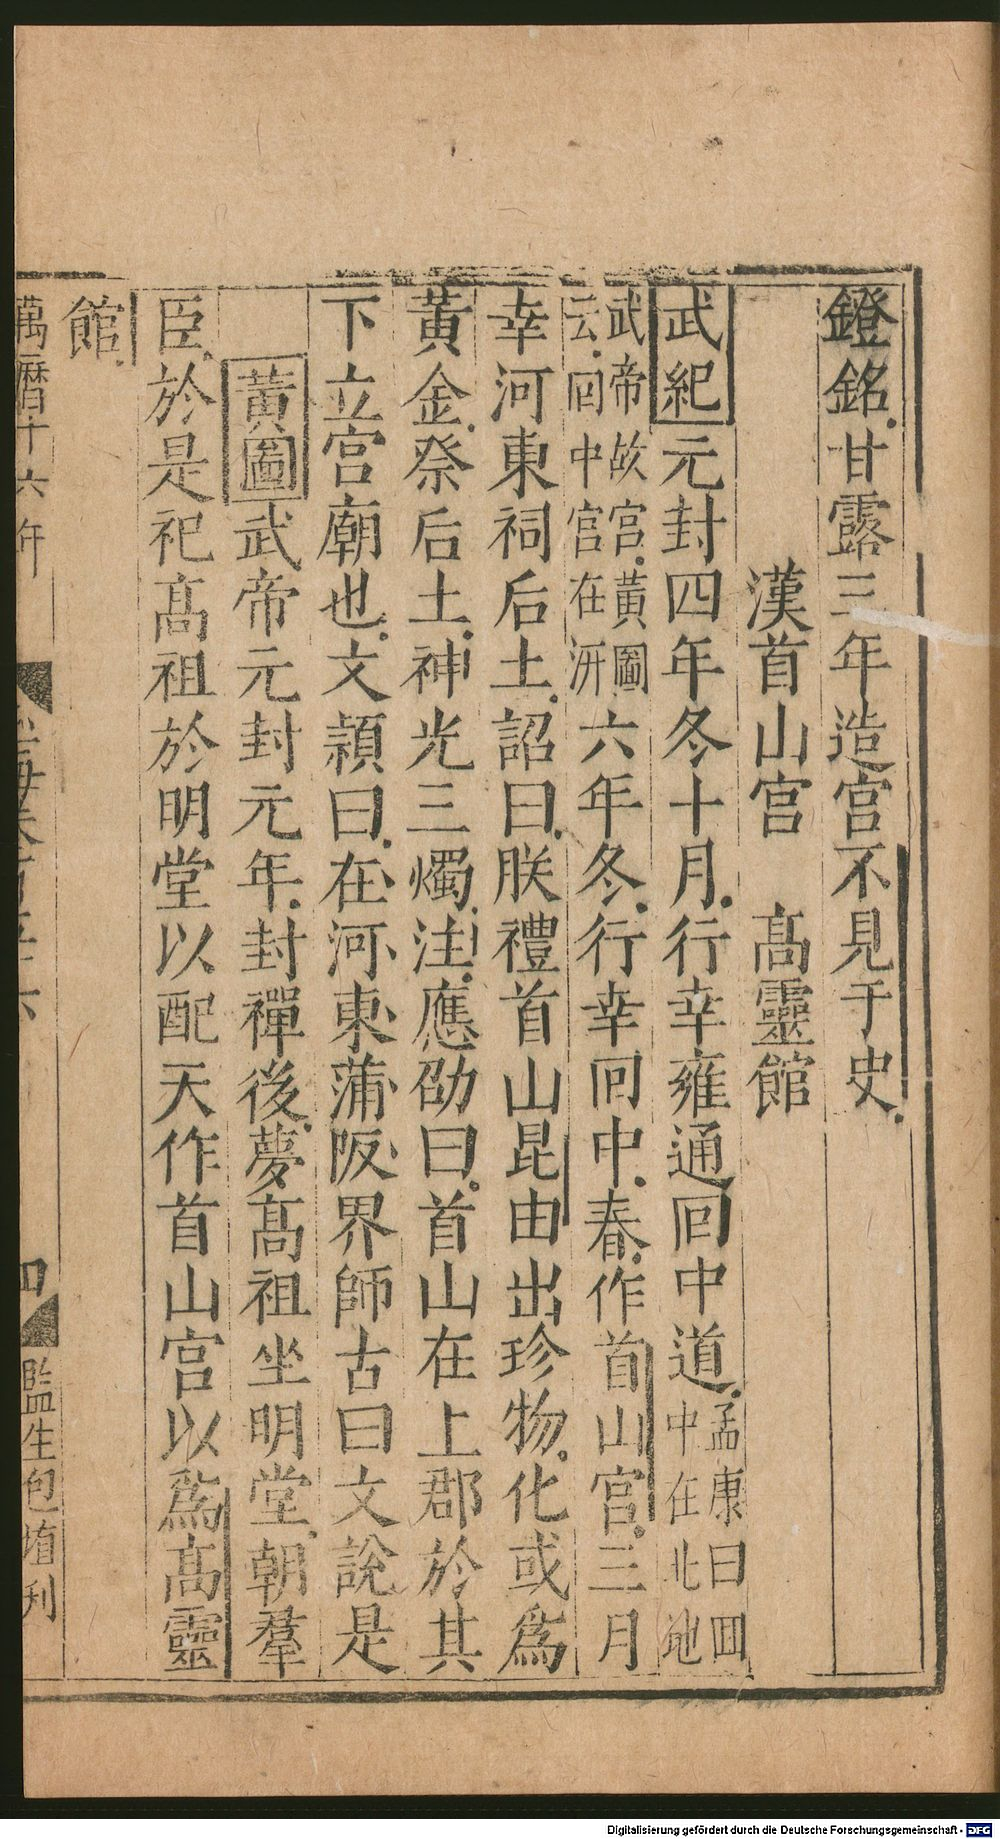 鐙銘甘露三年造宮不見于史
漢首山宮 髙靈館
武紀元封四年冬十月行幸雍通回中道孟康曰回中在北地
武帝故宮黃圖云回中宮在汧六年冬行幸回中春作首山宮三月
幸河東祠后土詔曰朕禮首山昆由出珍物化或為
黃金祭后土神光三燭注應劭曰首山在上郡於其
下立宮廟也文頴曰在河東蒲阪界師古曰文說是
黃圖武帝元封元年封禪後夢髙祖坐明堂朝羣
臣於是祀髙祖於明堂以配天作首山宮以為髙靈
館
萬曆十六年
四
監生包堉刊
Digitalisierung gefördert durch die Deutsche Forschungsgemeinschaft - DFG